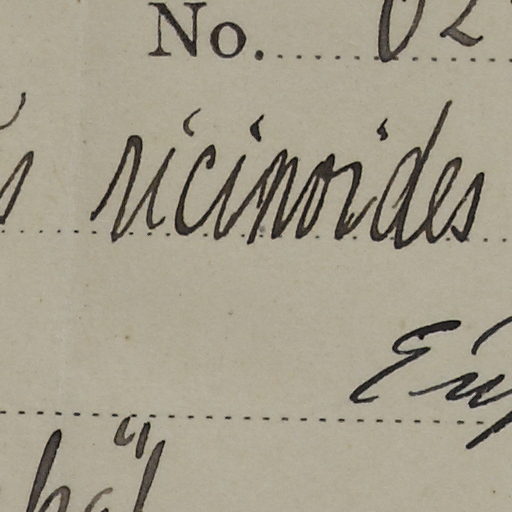 No. 02
s ricinoides
Eup